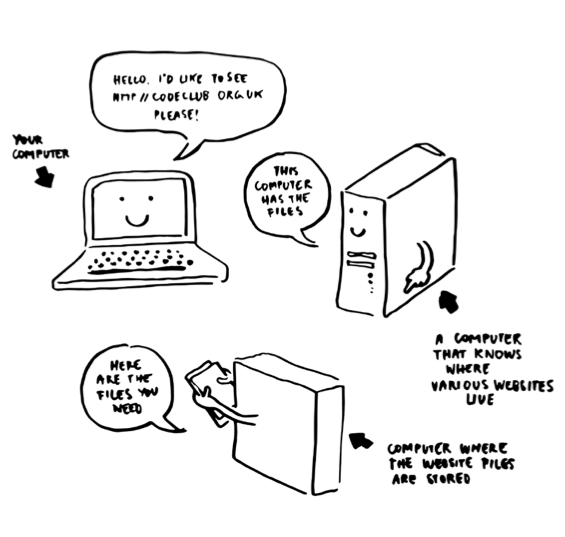 HELLO. I'D LIKE TO SEE
HTTP//CODECLUB ORG.UK
PLEASE!
YOUR
COMPUTER
THIS
COMPUTER
HAS THE
FILES
A COMPUTER
THAT KNOWS
WHERE
VARIOUS WEBSITES
LIVE
HERE
ARE THE
FILES YOU
NEED
COMPUTER WHERE
THE WEBSITE FILES
ARE STORED